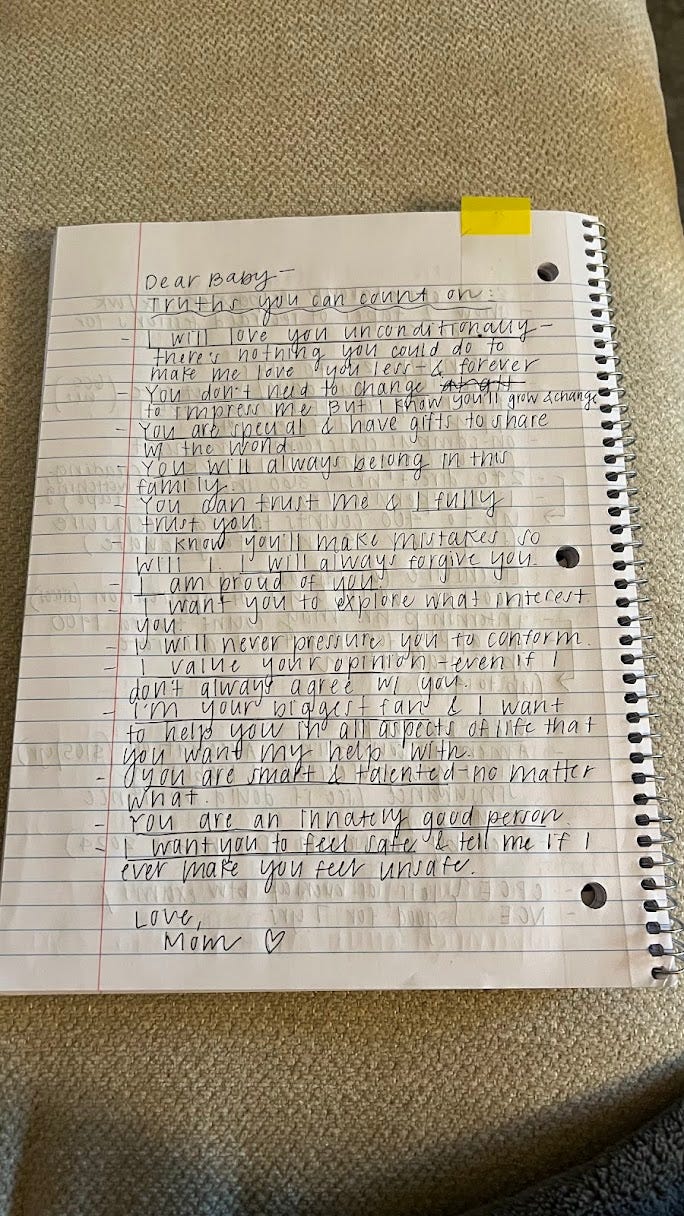 Dear Baby-
Truths you can count on:
- I will love you unconditionally-
there's nothing you could do to
make me love you less-& forever
- You don't need to change at all
to impress me But I know you'll grow & change
- You are special & have gifts to share
w/ the world.
- You will always belong in this
family.
- You can trust me & I fully
trust you.
- I know you'll make mistakes so
will I. I will always forgive you.
- I am proud of you.
- I want you to explore what interest
you.
- I will never pressure you to conform.
- I value your opinion-even if I
don't always agree w/ you.
- I'm your biggest fan & I want
to help you in all aspects of life that
you want my help with.
- you are smart & talented-no matter
what.
- You are an innately good person.
- I want you to feel safe & tell me if I
ever make you feel unsafe.
Love,
Mom ♡